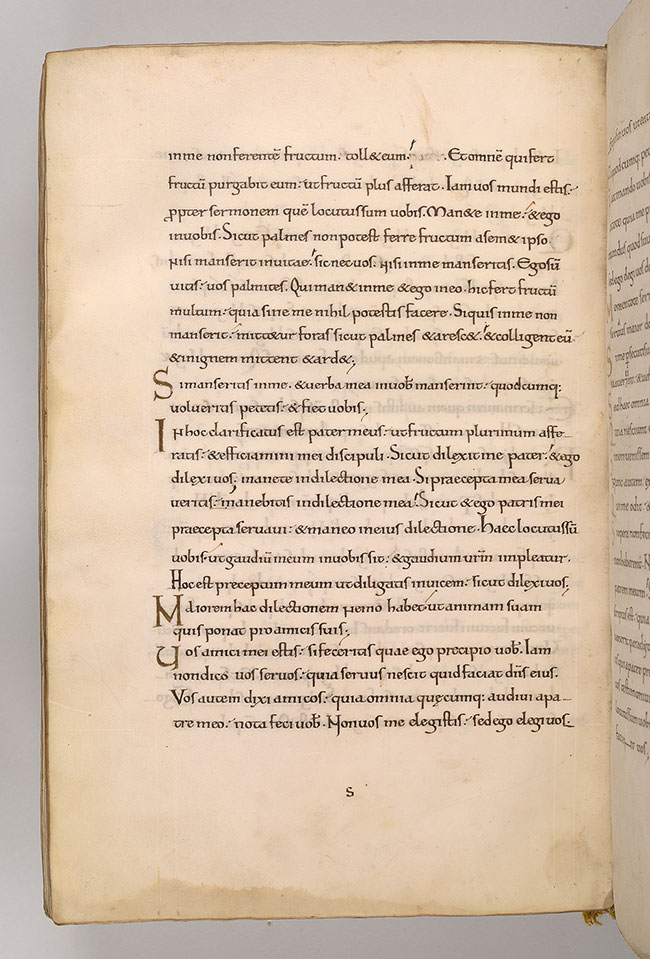 inme nonferentē fructum. toll&eum. Etomnē quifert
fructū purgabit eum. utfructū plus afferat. Iamuos mundi estis.
ppter sermonem quē locutussum uobis. Man&e inme. &ego
inuobis. Sicut palmes nonpotest ferre fructum asem&ipso
nisi manserit inuitae. sic necuos. nisi inme manseritis. Egosū
uitis. uos palmites. Qui man&inme &ego ineo. hicfert fructū
multum. quia sine me nihil potestis facere. Siquis inme non
manserit. mitt&ur foras sicut palmes &aresc&. &colligent eū
&inignem mittent &ard&;
Simanseritis inme. &uerba mea inuob manserint. quodcumq:
uolueritis petetis. &fiet uobis;
Inhoc clarificatus est pater meus. utfructum plurimum affe
ratis. &efficiamini mei discipuli. Sicut dilexitme pater. &ego
dilexi uos. manete indilectione mea. Sipraecepta mea serua
ueritis. manebitis indilectione mea. Sicut &ego patris mei
praecepta seruaui. &maneo ineius dilectione. Haec locutussū
uobis. utgaudiū meum inuobis sit. &gaudium urm impleatur.
Hoc est preceptum meum utdiligatis inuicem. sicut dilexiuos.
Maiorem hac dilectionem nemo habet. utanimam suam
quis ponat proamicis suis;
Uos amici mei estis. sifeceritis quae ego precipio uob. Iam
nondico uos seruos. quia seruus nescit quidfaciat dns eius.
Vos autem dixi amicos. quia omnia quęcumq: audiui apa
tre meo. nota feci uob. Nonuos me elegistis. sedego elegiuos.
S